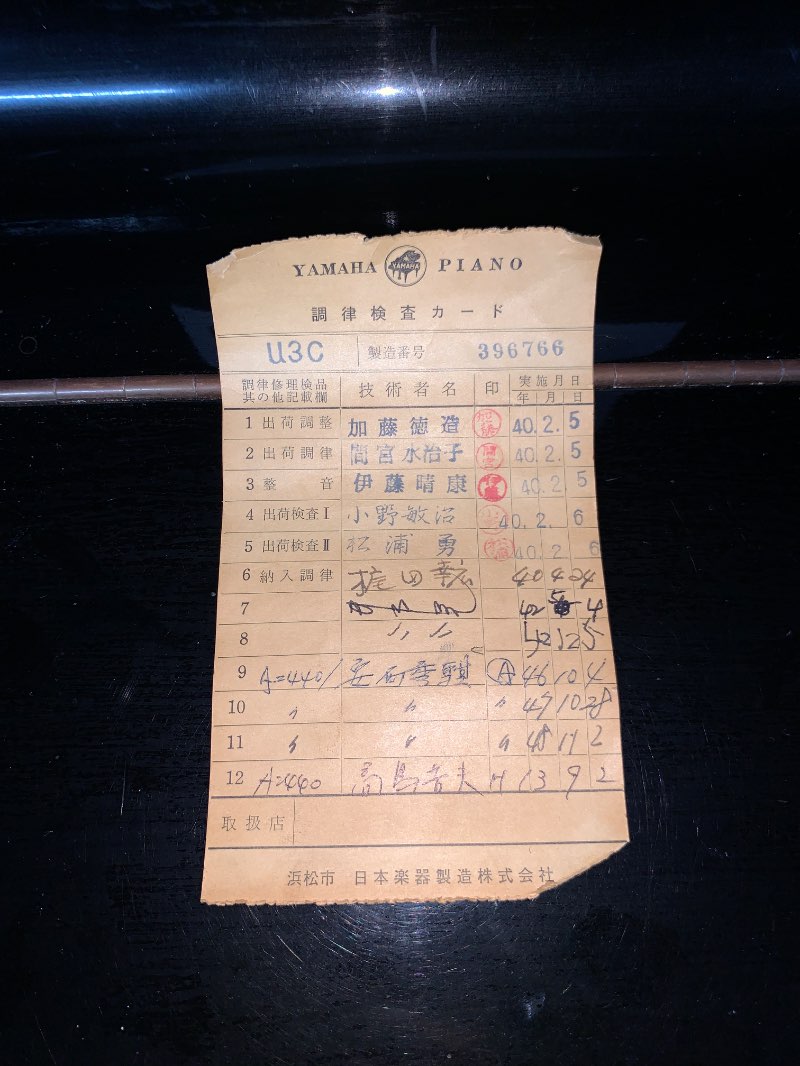 YAMAHA YAMAHA PIANO
調律検査カード
U3C 製造番号 396766
調律修理検品 技術者名 印 実施月日
其の他記載欄 年 月 日
1 出荷調整 加藤徳造 加藤 40.2.5
2 出荷調律 間宮水治子 間宮 40.2.5
3 整音 伊藤晴康 伊藤 40.2 5
4 出荷検査I 小野敏治 40.2.6
5 出荷検査II 松浦勇 松浦 40.2 6
6 納入調律 40 4 24
7 42 5 4
8 〃 〃 42 12 5
9 A=440 A 46 10 4
10 〃 〃 〃 47 10 28
11 〃 〃 〃 48 11 2
12 A=440 H 13 9 2
取扱店
浜松市 日本楽器製造株式会社